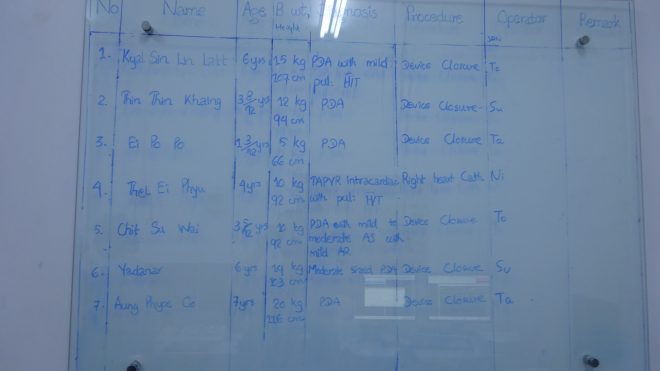 No Name Age B wt, Height Diagnosis Procedure Operator Remark
1. Kyal Sin Lin Latt 6 yrs 15 kg PDA with mild Device Closure
107 cm pul: HT
2. Thin Thin Khaing 3 9/12 yrs 12 kg PDA Device Closure Su
99 cm
3. Ei Po Po 1 3/12 yrs 5 kg PDA Device Closure Ta
66 cm
4. Thel Ei Phyu 4 yrs 10 kg TAPVR intracardiac Right heart Cath Ni
92 cm with pul: HT
5. Chit Su Wai yrs 10 kg PDA with mild to Device Closure
92 cm moderate AS with
mild AR
6. Yadanar 6 yrs 19 kg Moderate sized PDA Device Closure Su
103 cm
7. Aung Phyoe 7 yrs 20 kg PDA Device Closure Ta
116 cm